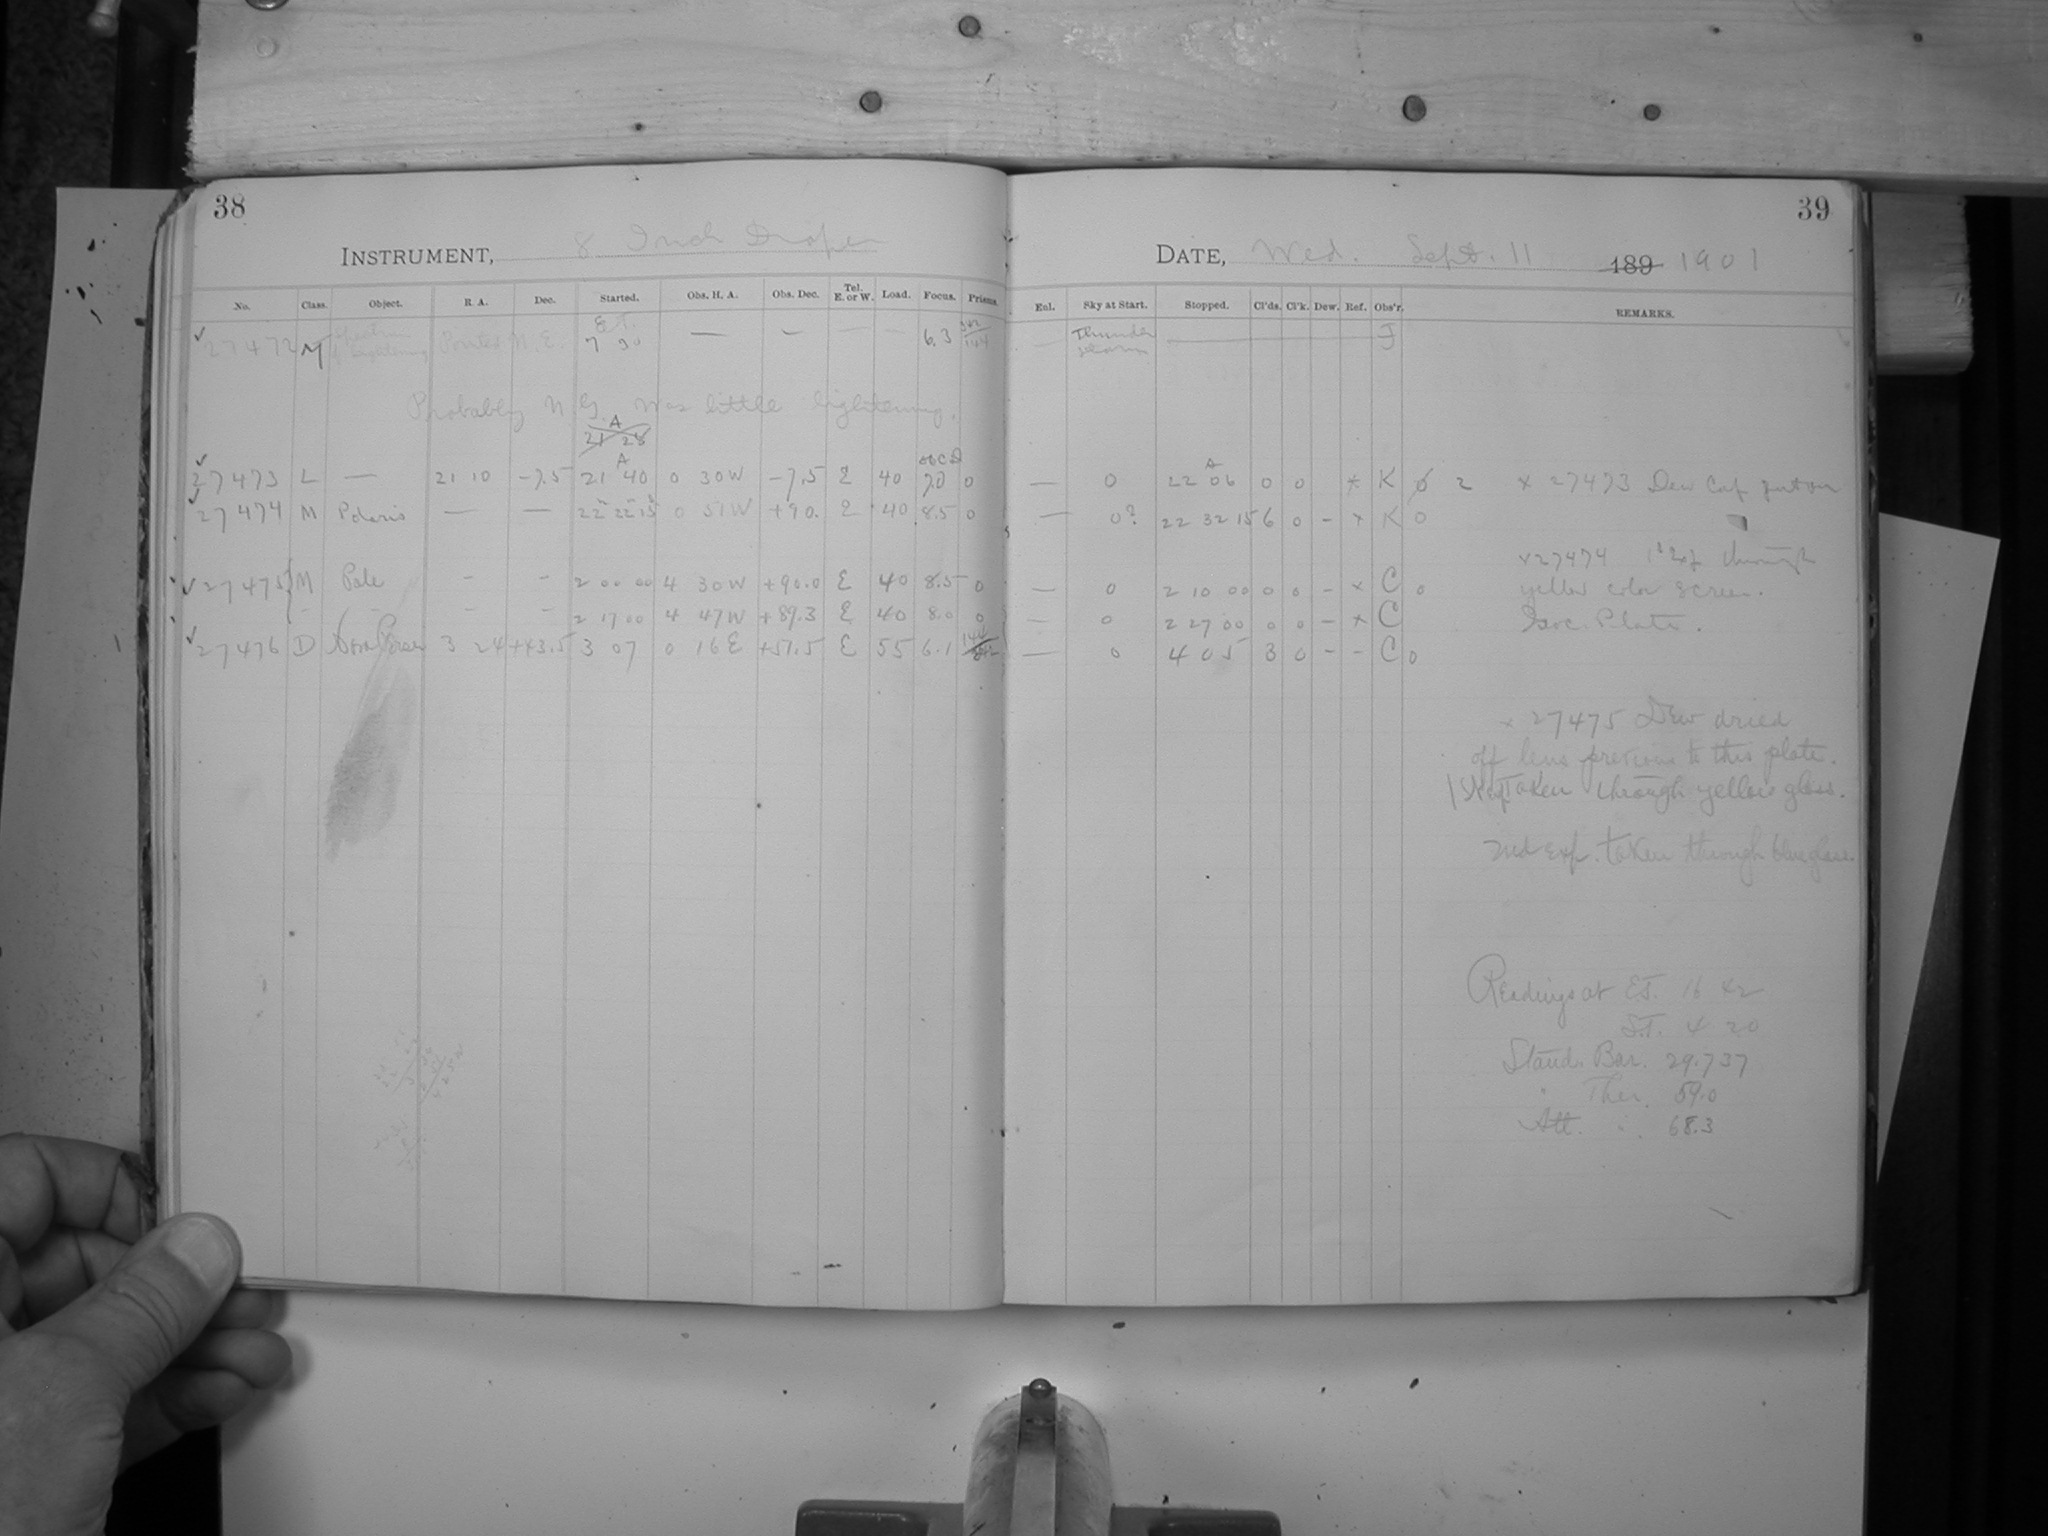 38
INSTRUMENT, 8 Inch Draper
No. Class. Object. R. A. Dec. Started. Obs. H. A. Obs. Dec. Tel. E. or W. Load. Focus. Prisms.
27472 M Spectrum of Lightening Pointed N. E. E.T. 7 30 — — — — 6.3
Probably N.G. Was little lightening.
A
21 28
27473 L — 21 10 -7.5 A 21 40 0 30W -7.5 E 40 7.0 0
27474 M Polaris — — 22 22 15 0 51W +90. E 40 8.5 0
27475 M Pole - - 2 00 00 4 30W +90.0 E 40 8.5 0
- - - - 2 17 00 4 47W +89.3 E 40 8.0 0
27476 D Nova Persei 3 24 +43.5 3 07 0 16E +51.5 E 55 6.1
39
DATE, Wed. Sept. 11 189 1901
Eol. Sky at Start. Stopped. Cl'ds. Cl'k. Dew. Ref. Obs'r. REMARKS.
— Thunder storm — J
— 0 A 22 06 0 0 x K 0 2 x 27473 Dew Cap put on
— 0? 22 32 15 6 0 - x K 0
x27474 1st Exp through
— 0 2 10 00 0 0 - x C 0 yellow color screen.
— 0 2 27 00 0 0 - x C Isoc. Plate.
— 0 4 05 3 0 - - C 0
x 27475 Dew dried
off lens previous to this plate.
1st Exp Taken through yellow glass.
2nd exp. taken through blue glass.
Readings at E.T. 16 42
S.T. 4 20
Stand. Bar. 29.737
" Ther. 59.0
Att. " 68.3